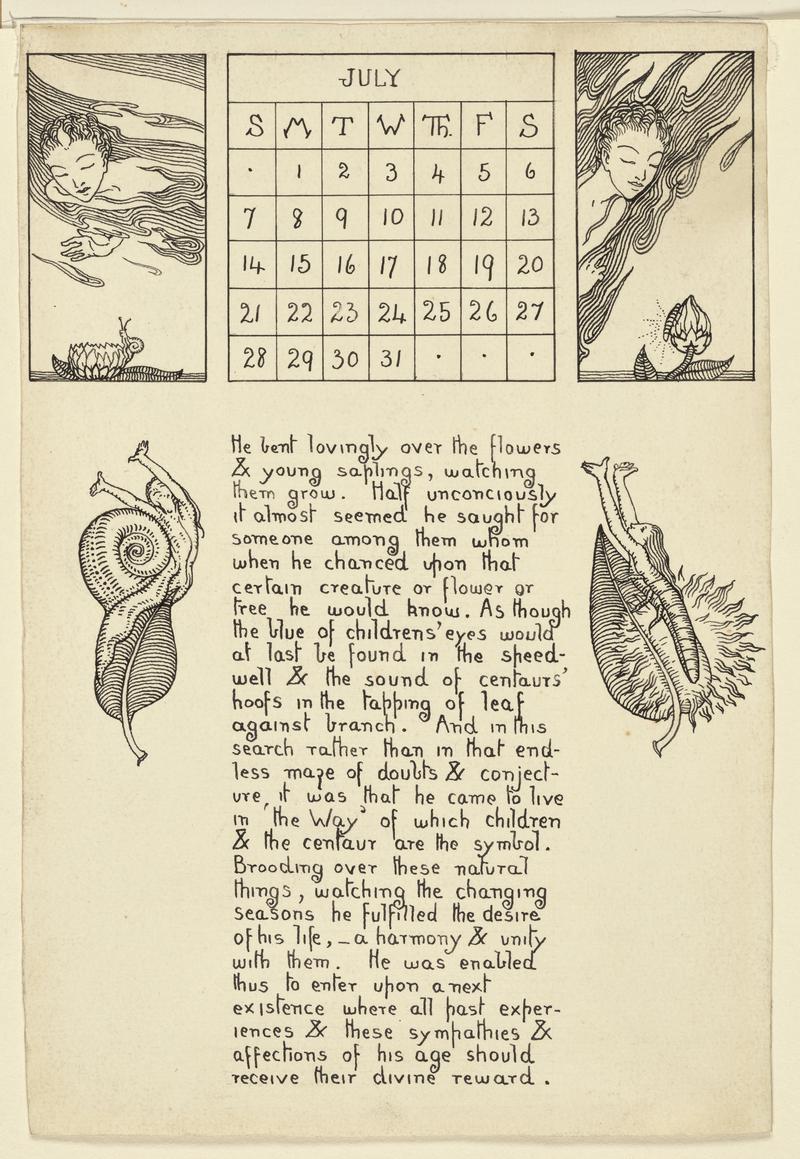 JULY
S M T W Th. F S
· 1 2 3 4 5 6
7 8 9 10 11 12 13
14 15 16 17 18 19 20
21 22 23 24 25 26 27
28 29 30 31 · · ·
He bent lovingly over the flowers
& young saplings, watching
them grow. Half unconciously
it almost seemed he saught for
someone among them whom
when he chanced upon that
certain creature or flower or
tree he would know. As though
the blue of childrens' eyes would
at last be found in the speed-
well & the sound of centaurs'
hoofs in the tapping of leaf
against branch. And in this
search rather than in that end-
less maze of doubts & conject-
ure, it was that he came to live
in 'the Way' of which children
& the centaur are the symbol.
Brooding over these natural
things, watching the changing
seasons he fulfilled the desire
of his life, – a harmony & unity
with them. He was enabled
thus to enter upon a next
existence where all past exper-
iences & these sympathies &
affections of his age should
receive their divine reward.